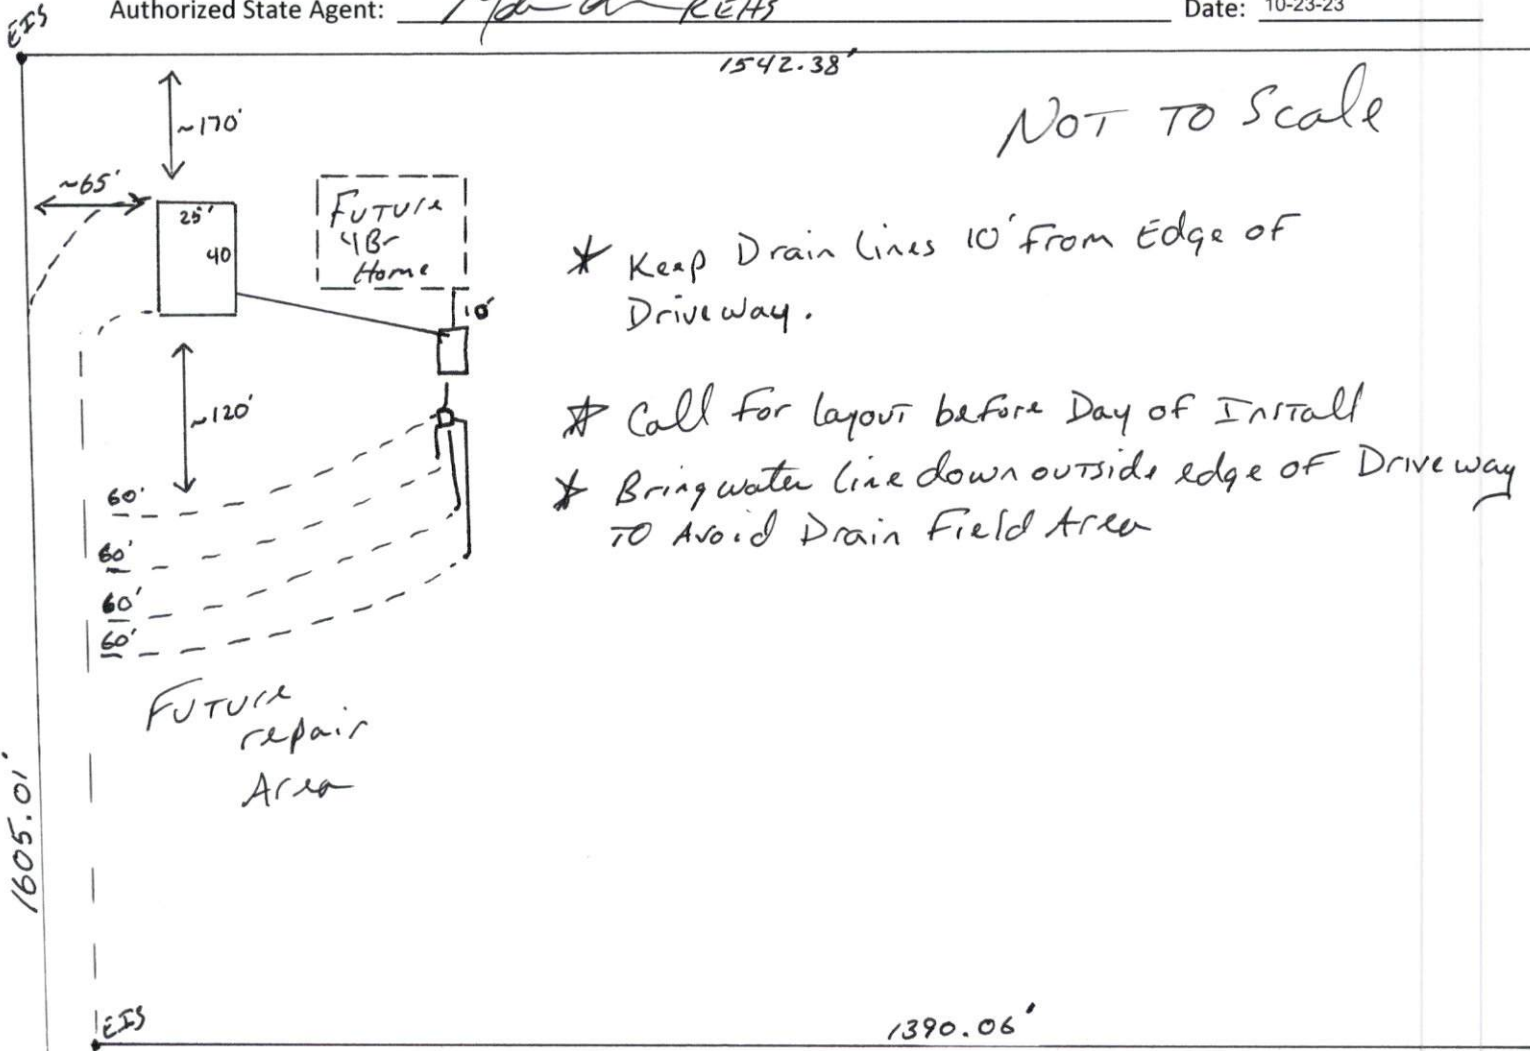 Authorized State Agent: REHS Date: 10-23-23
EIS
1542.38'
NOT TO Scale
~170'
~65'
25'
40
Future
4Br
Home
10'
* Keep Drain Lines 10' From Edge of
Driveway.
~120'
* Call for layout before Day of Install
* Bring water line down outside edge of Driveway
TO Avoid Drain Field Area
D
60'
60'
60'
60'
Future
repair
Area
1605.01'
EIS
1390.06'